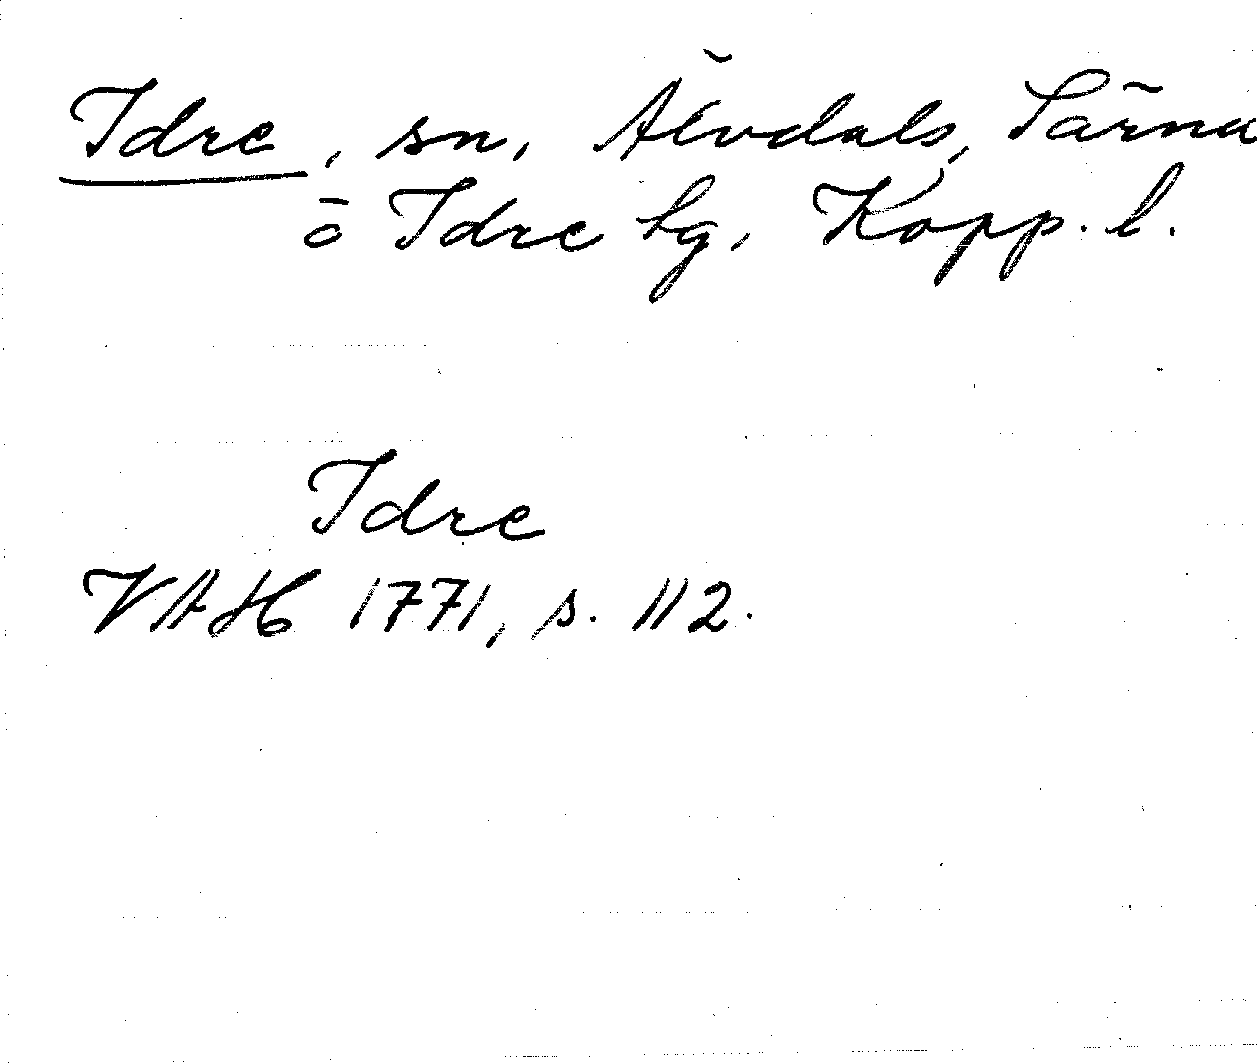 Idre, sn, Älvdals, Särna
o Idre tg, Kopp. l.
Idre
VAH 1771, s. 112.